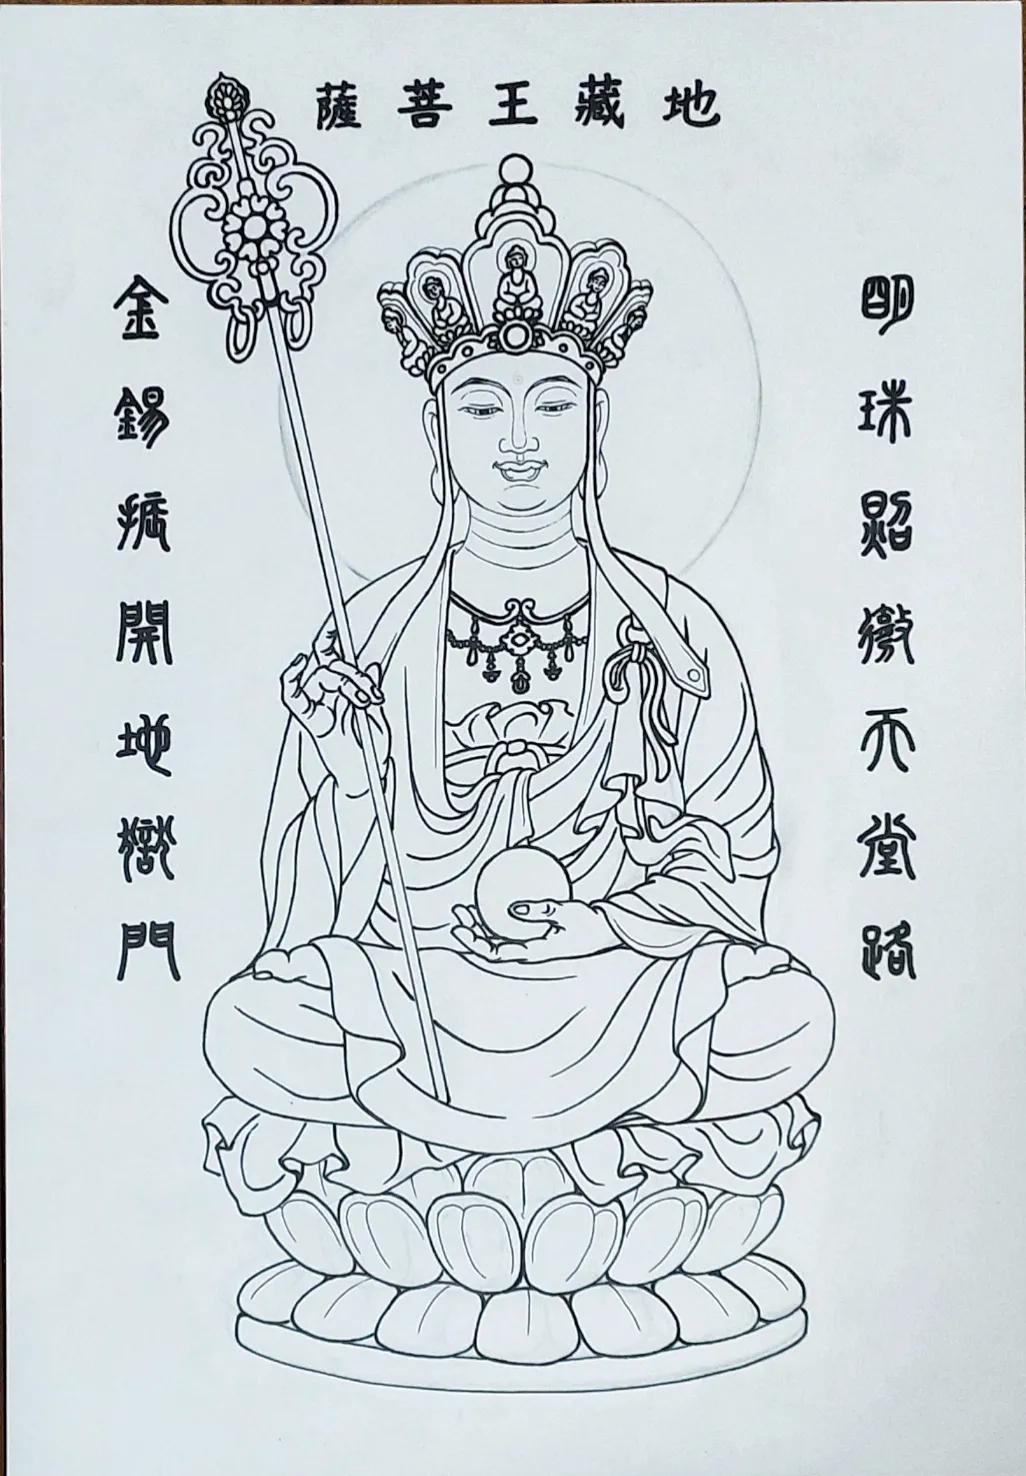 地藏王菩薩
明珠照徹天堂路
金錫振開地獄門